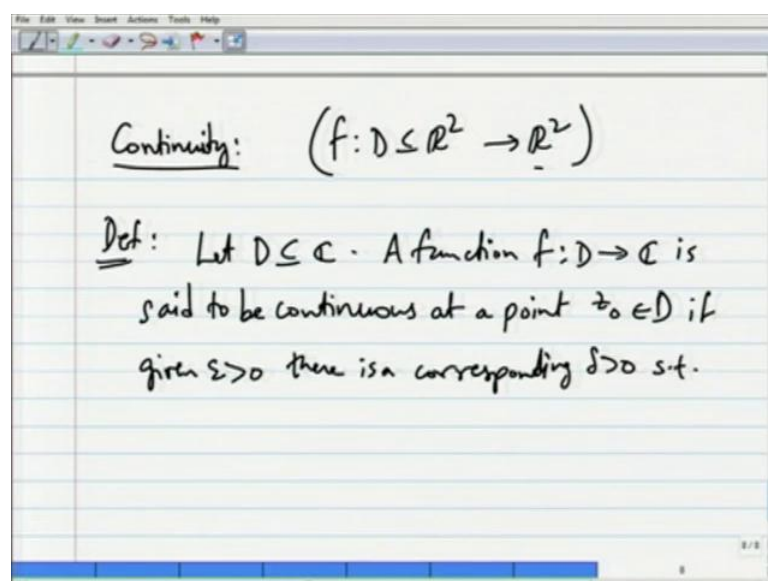 File Edit View Insert Actions Tools Help
Continuity: (f: D ⊆ ℝ² → ℝ²)
Def: Let D ⊆ ℂ. A function f: D → ℂ is
said to be continuous at a point z₀ ∈ D if
given ε>0 there is a corresponding δ>0 s.t.
8/8
8